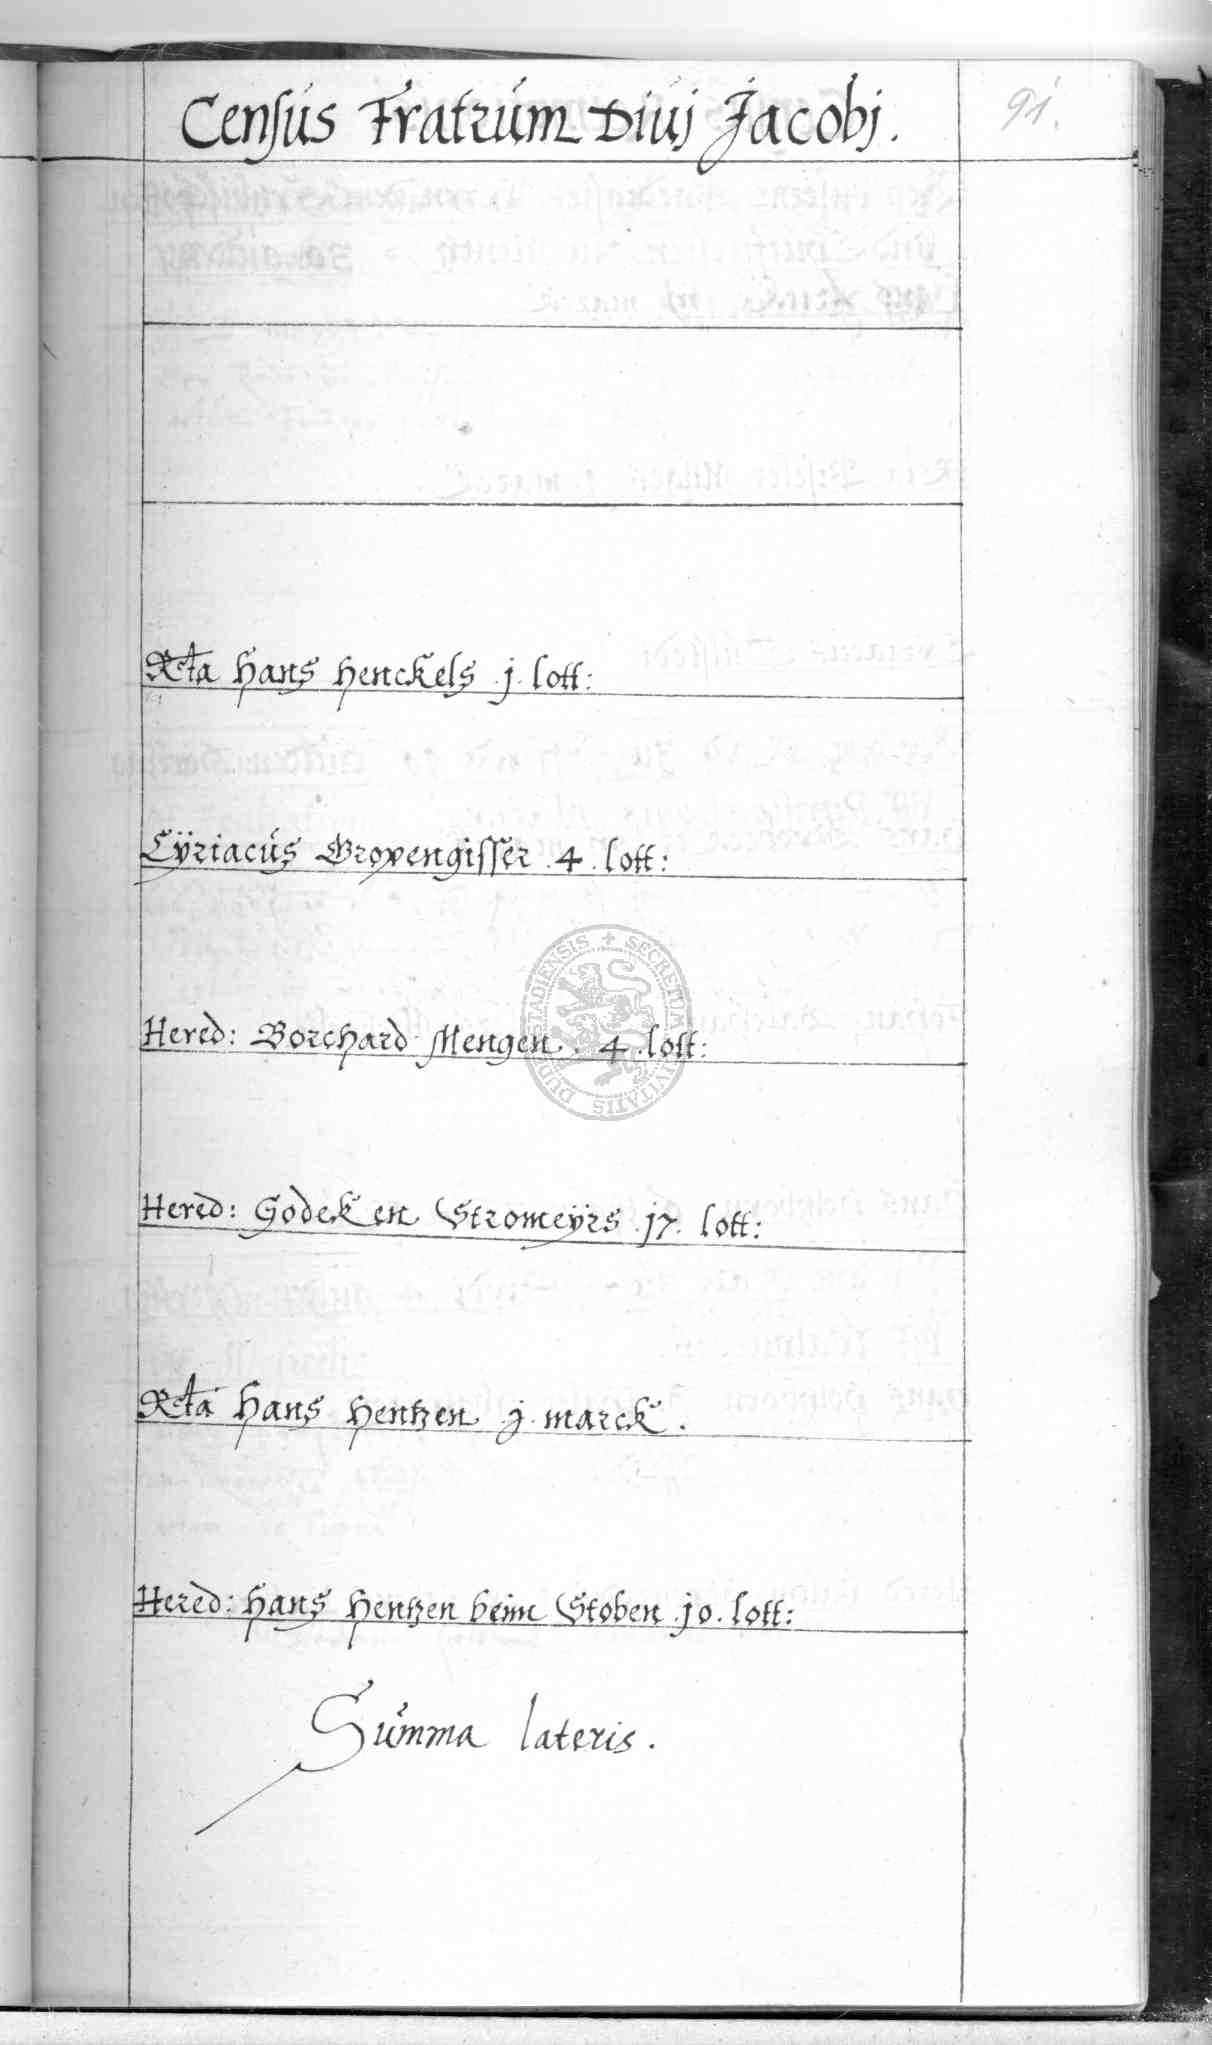 Census Fratrum Diuj Jacobj.
91.
Rcta Hans Henckels .j. lott:
Cÿriacus Gropengisser .4. lott:
Hered: Borchard Mengen. 4. lott:
SECRETUM CIVITATIS DUDERSTADIENSIS
Hered: Godeken Stromeÿrs .j7. lott:
Rcta Hans Hentzen .j. marck.
Hered: Hans Hentzen beim Stoben .jo. lott:
Summa lateris.